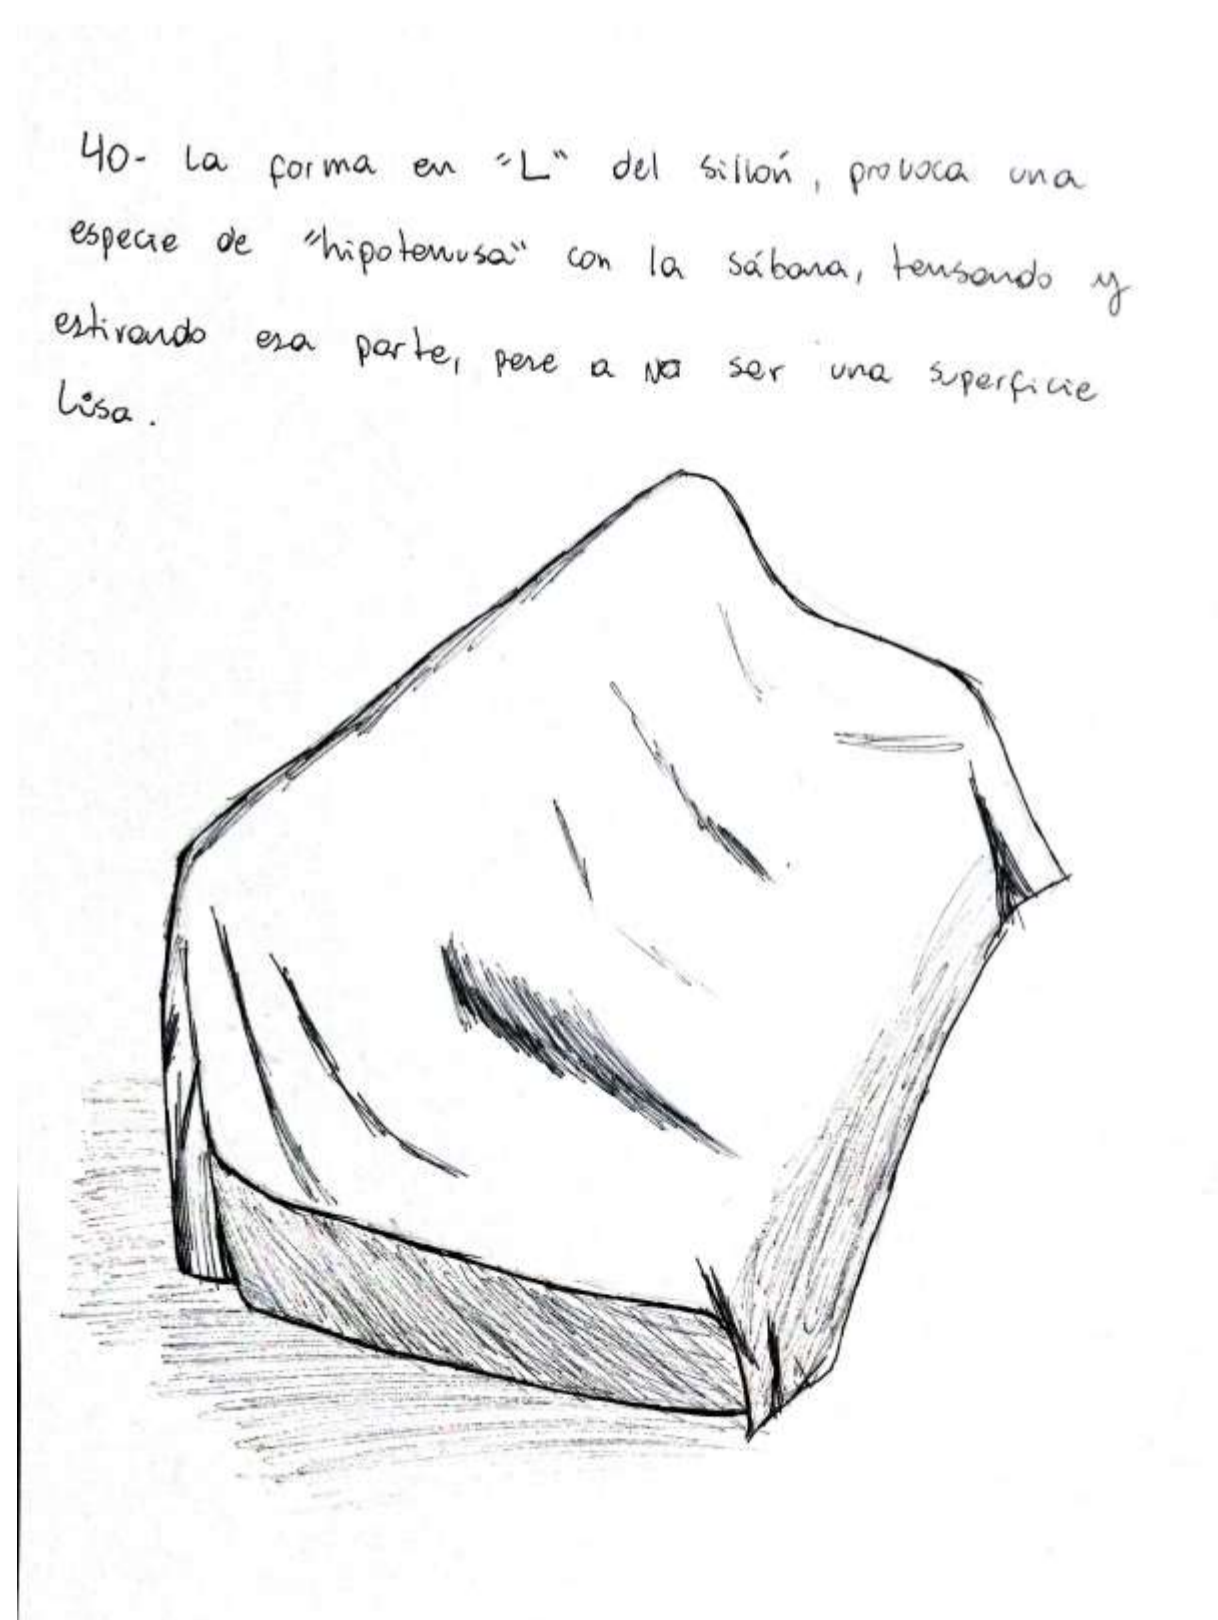 40- La forma en "L" del sillón, provoca una
especie de "hipotenusa" con la sábana, tensando y
estirando esa parte, pese a no ser una superficie
Lisa.